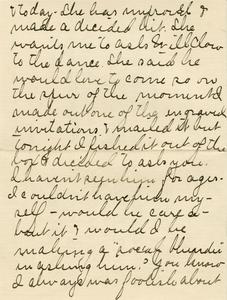 & today. She has improved &
made a decided hit. She
wants me to ask Bill Clow
to the dance. She said he
would love to come so on
the spur of the moment I
made out one of the engraved
invitations & mailed it but
tonight I fished it out of the
box & decided to ask you.
I haven't seen him for ages.
I couldn't have him my-
self - would he care a-
bout it & would I be
making a "social blunder"
in asking him." You know
I always was foolish about